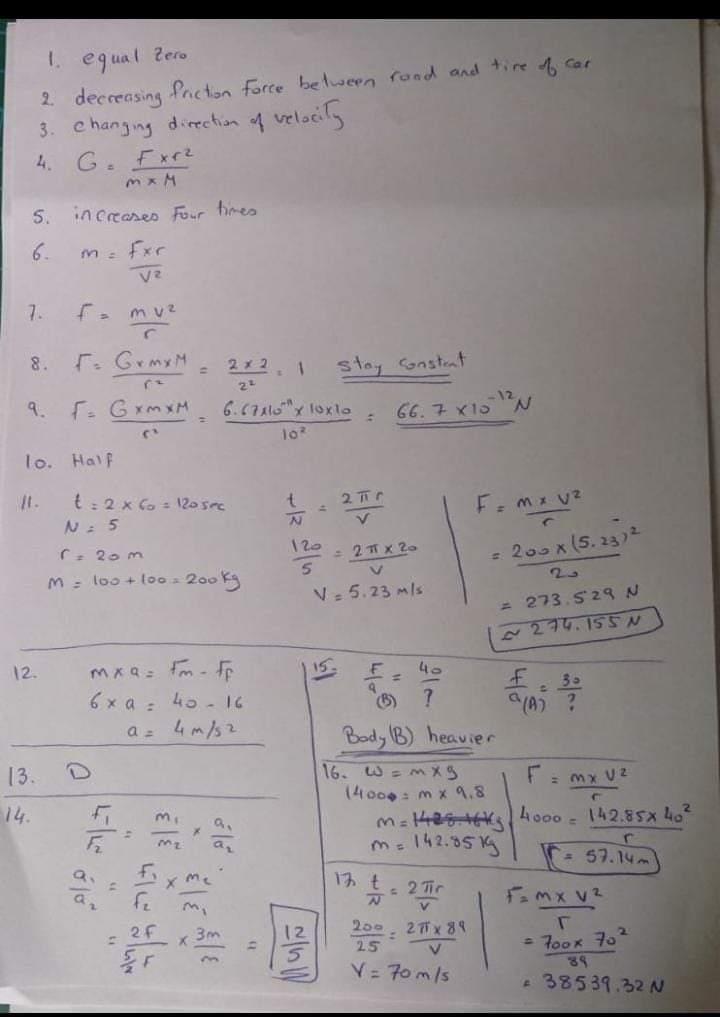 1. equal Zero
2. decreasing friction force between road and tire of car
3. changing direction of velocity
4. G = F×r² / m×M
5. increases Four times
6. m = F×r / V²
7. F = m v² / r
8. F = G×m×M / r² = 2×2 / 2² = 1 Stay Constant
9. F = G×m×M / r² = 6.67×10⁻¹¹ × 10×10 / 10² = 66.7 ×10⁻¹² N
10. Half
11. t = 2 × 60 = 120 sec
N = 5
r = 20 m
m = 100 + 100 = 200 Kg
t / N = 2πr / V
120 / 5 = 2π×20 / V
V = 5.23 m/s
F = m × V² / r
= 200 × (5.23)² / 20
= 273.529 N
≈ 274.155 N
12. m×a = Fm - Ff
6 × a = 40 - 16
a = 4 m/s2
13. D
14. F₁ / F₂ = m₁ / m₂ × a₁ / a₂
a₁ / a₂ = F₁ / F₂ × m₂ / m₁
= 2F / 5/2 F × 3m / m = 12 / 5
15. F / a (B) = 40 / ?
F / a (A) = 30 / ?
Body (B) heavier
16. W = m×g
1400 = m × 9.8
m = 142.85 Kg
F = m×V² / r
4000 = 142.85× 40² / r
r = 57.14 m
17. t / N = 2πr / V
200 / 25 = 2π×89 / V
V = 70 m/s
F = m × V² / r
= 700× 70² / 89
= 38539.32 N